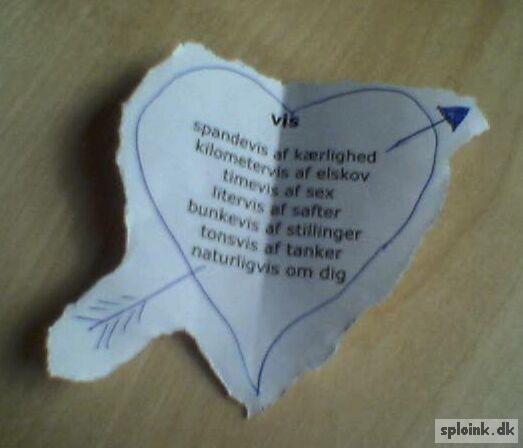 vis
spandevis af kærlighed
kilometervis af elskov
timevis af sex
litervis af safter
bunkevis af stillinger
tonsvis af tanker
naturligvis om dig
sploink.dk